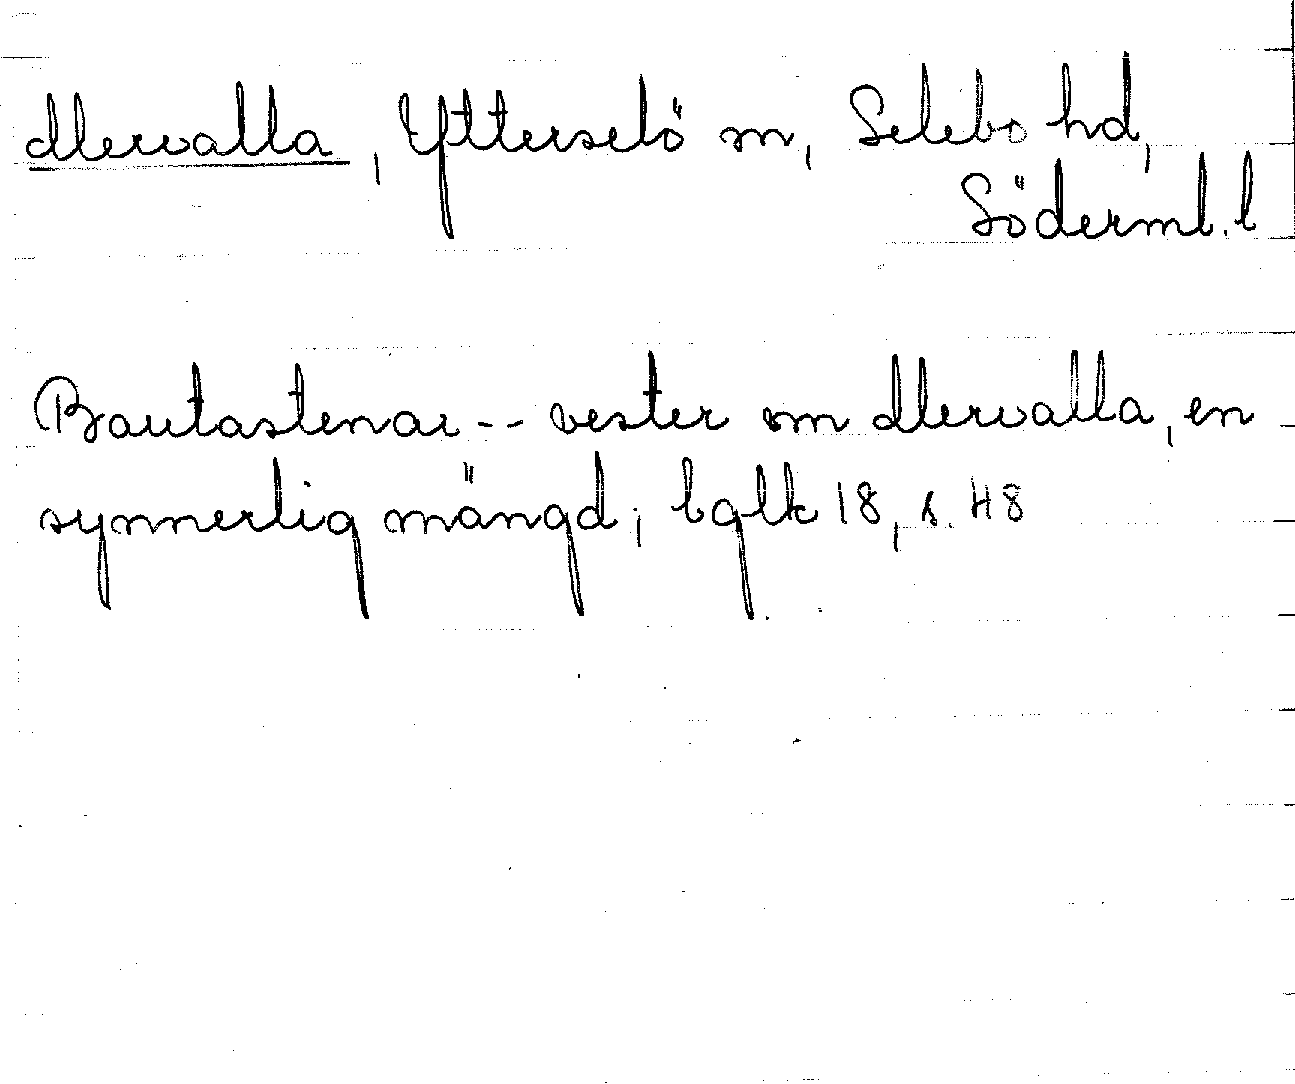 Mervalla, Ytterselö sn, Selebo hd,
Söderml. l
Bautastenar -- vester om Mervalla, en
synnerlig mängd; bglk 18, s. 48